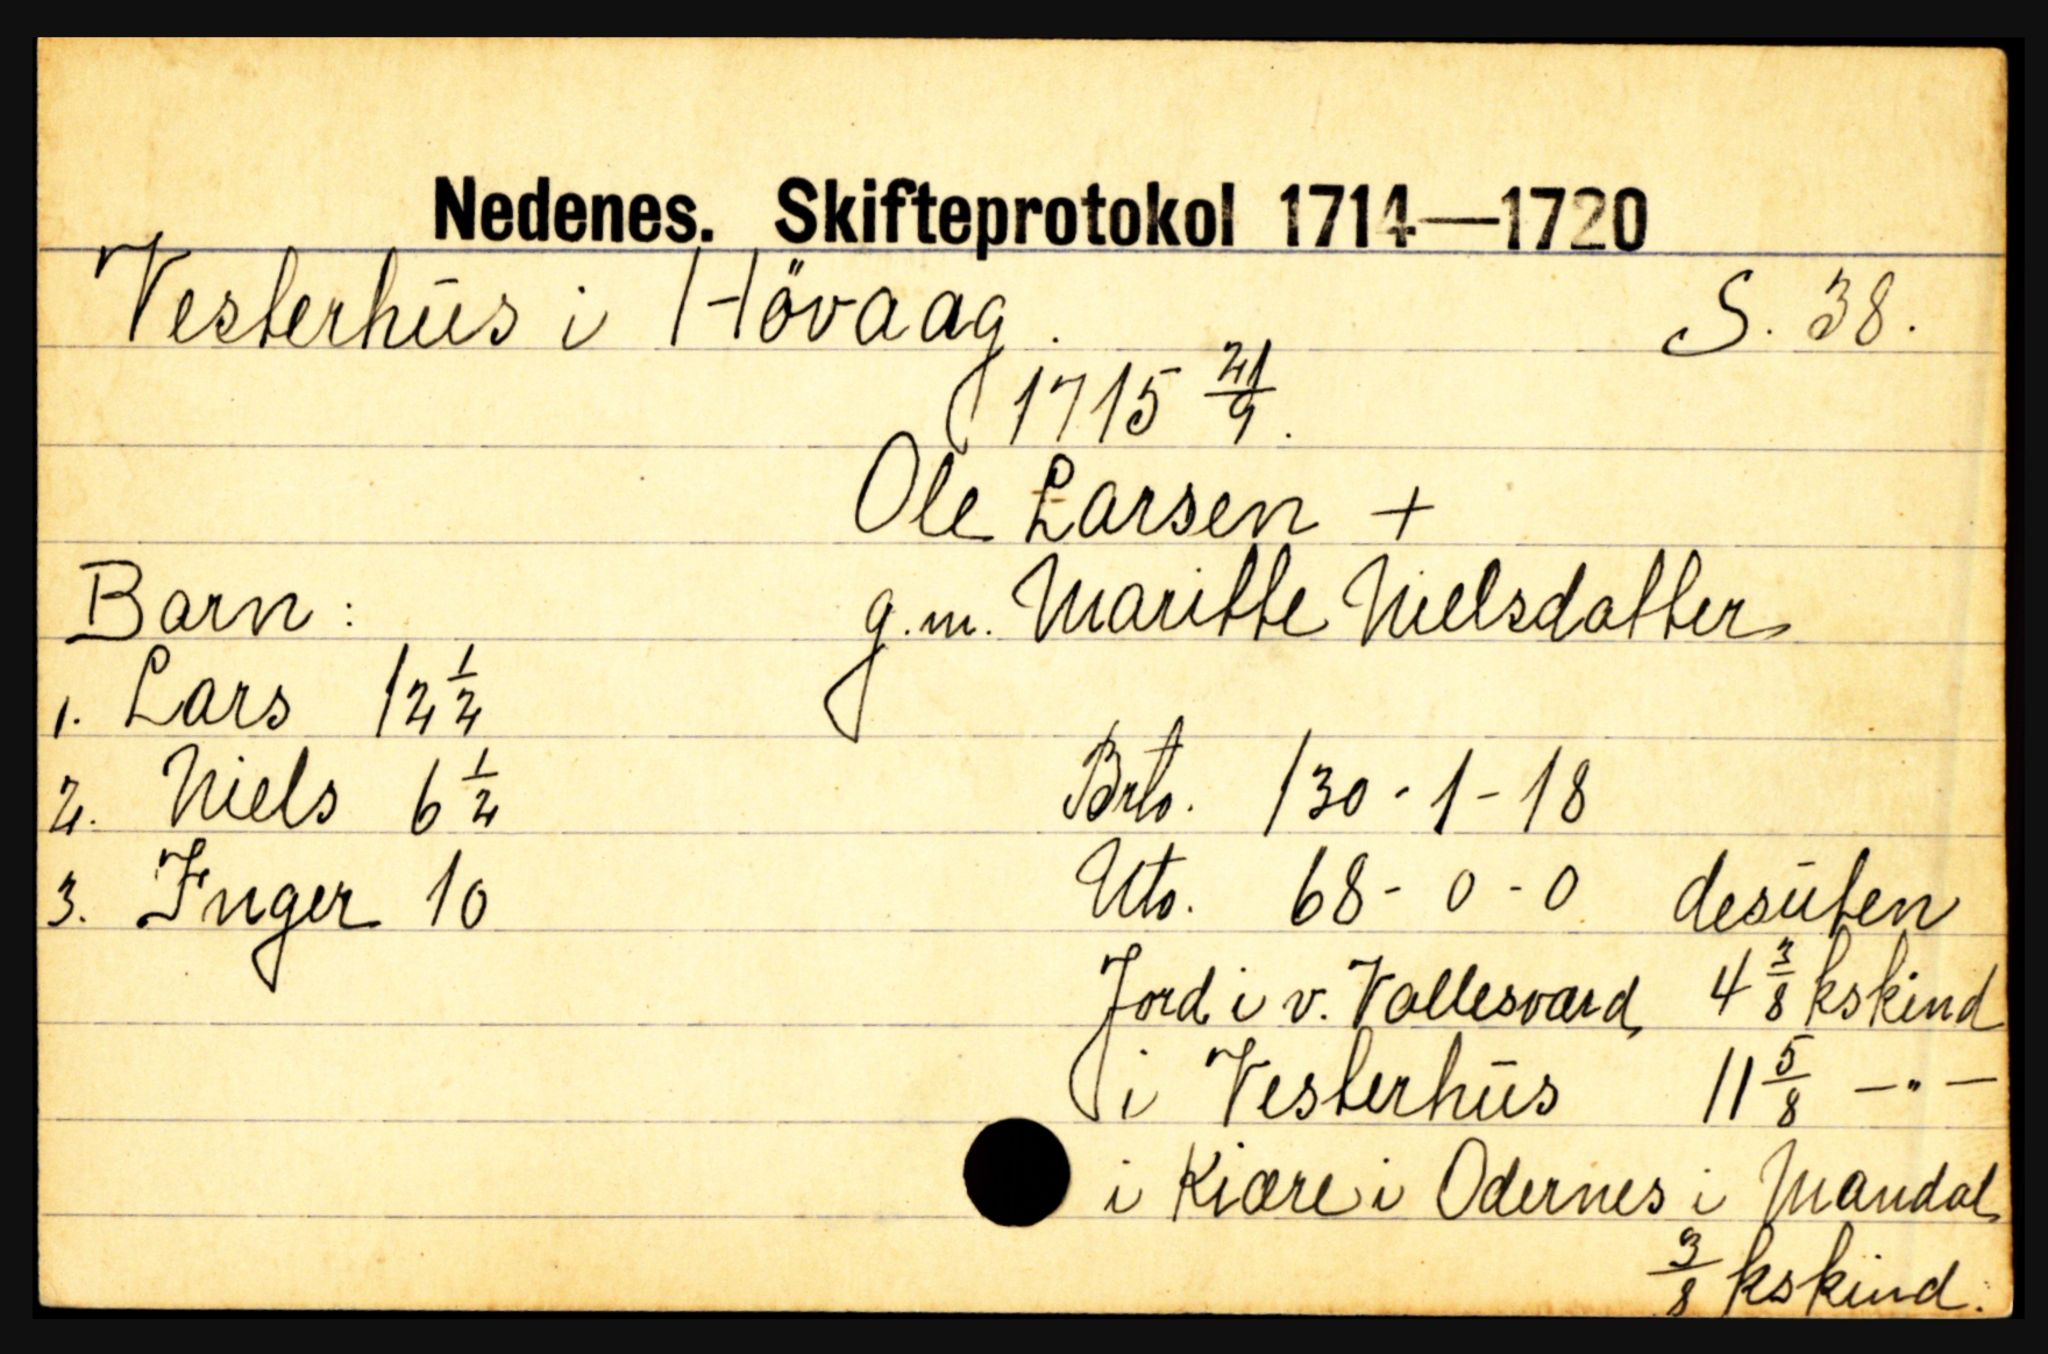 Nedenes. Skifteprotokol 1714—1720
Vesterhüs i Hövaag. S. 38.
1715 21/9.
Ole Larsen +
Barn: g.m. Maritte Nielsdatter
1. Lars 12 1/2
2. Niels 6 1/2 Brto. 130-1-18
3. Inger 10 Nto. 68-0-0 desüten
Jord i v. Vallesværd 4 3/8 kskind
i Vesterhüs 11 5/8 —"—
i Kiære i Odernes i Mandal
3/8 kskind.